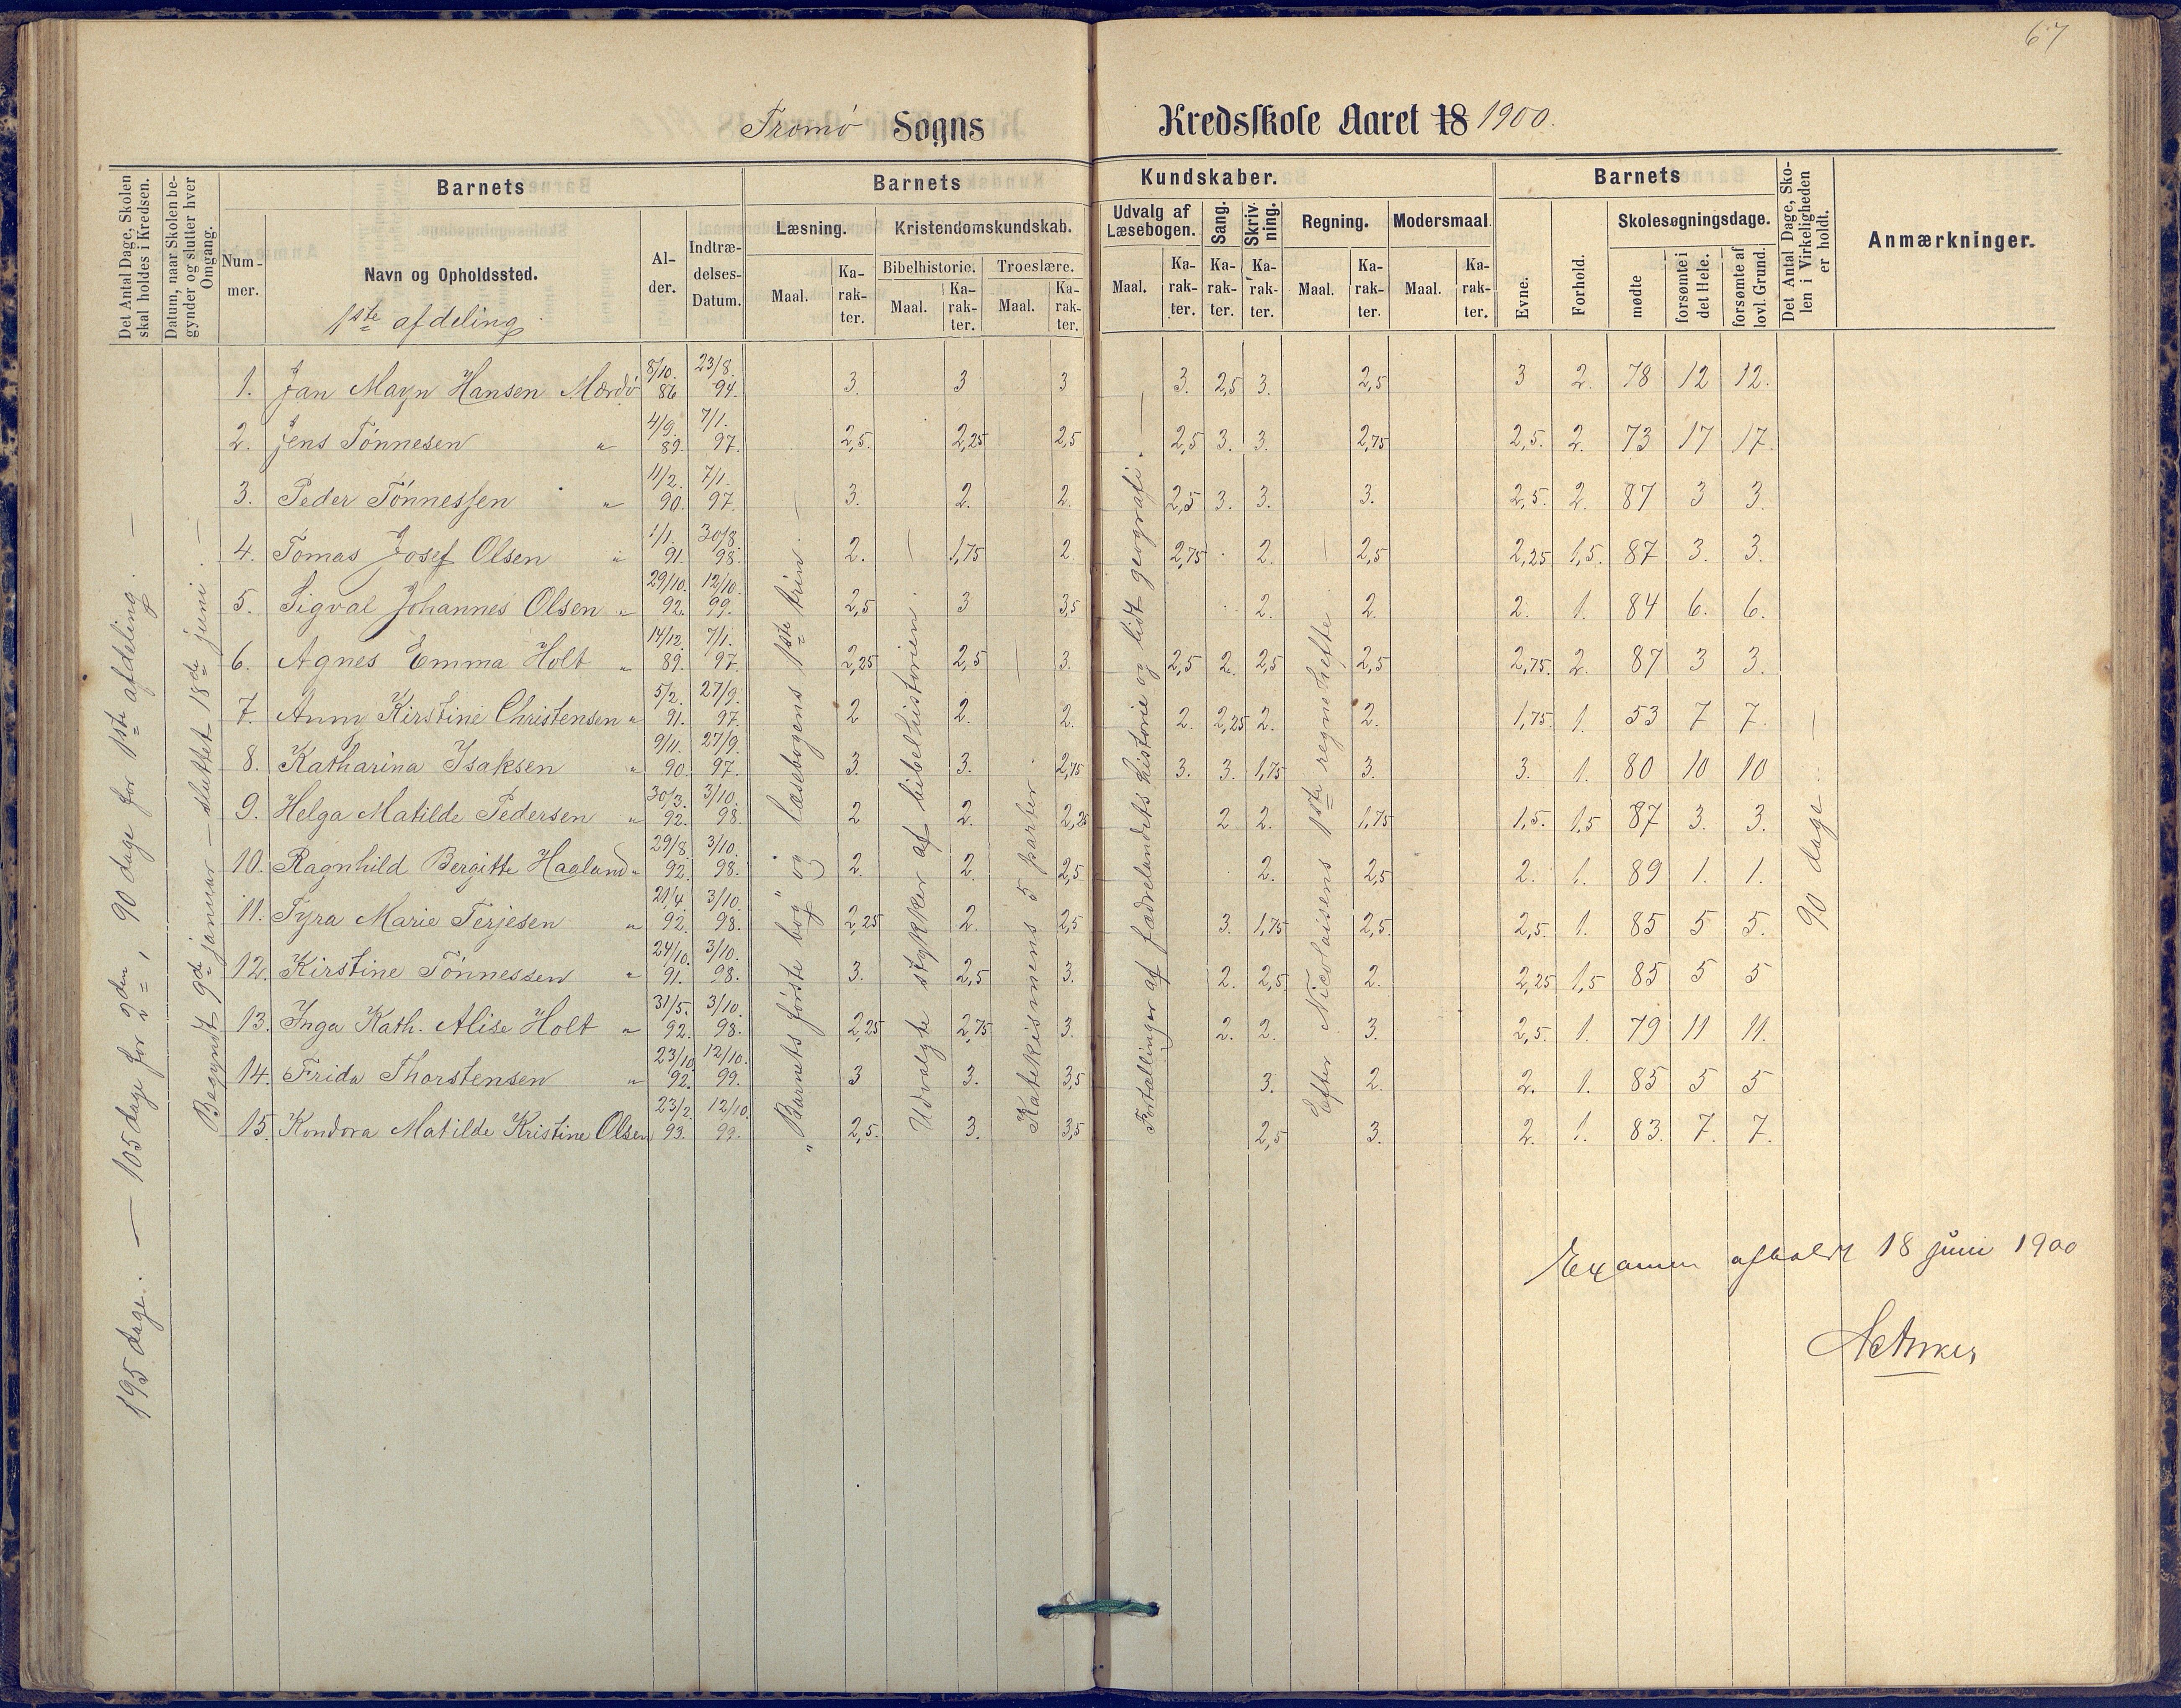 67
Tromø Sogns Kredsskole Aaret 18 1900.
Det Antal Dage, Skolen skal holdes i Kredsen.
Datum, naar Skolen begynder og slutter hver Omgang.
Barnets
Nummer.
Navn og Opholdssted.
1ste afdeling
Alder.
Indtrædelses-Datum.
Barnets Kundskaber.
Læsning.
Maal.
Karakter.
Kristendomskundskab.
Bibelhistorie.
Maal.
Karakter.
Troeslære.
Maal.
Karakter.
Udvalg af Læsebogen.
Maal.
Karakter.
Sang.
Karakter.
Skrivning.
Karakter.
Regning.
Maal.
Karakter.
Modersmaal.
Maal.
Karakter.
Barnets
Evne.
Forhold.
Skolesøgningsdage.
mødte
forsømte i det Hele.
forsømte af lovl. Grund.
Det Antal Dage, Skolen i Virkeligheden er holdt.
Anmærkninger.
195 dage. — 105 dage for 2den, 90 dage for 1ste afdeling. —
Begyndt 9de januar — sluttet 18de juni. —
1. Jan Mayn Hansen Mærdø 8/10. 86 23/8. 94. 3. 3 3 3. 2,5 3. 2,5 3 2. 78 12 12.
2. Jens Tönnesen " 4/9. 89. 7/1. 97. 2,5. 2,25 2,5 2,5 3. 3. 2,75 2,5. 2. 73 17 17.
3. Peder Tönnessen " 11/2. 90. 7/1. 97. 3. 2. 2. 2,5 3. 3. 3. 2,5. 2. 87 3 3.
4. Tomas Josef Olsen " 1/1. 91. 30/8. 98. 2. 1,75 2. 2,75 2. 2,5 2,25 1,5. 87 3. 3.
5. Sigval Johannes Olsen " 29/10. 92. 12/10. 99. 2,5 3 3,5 2. 2. 2. 1. 84 6. 6.
6. Agnes Emma Holt " 14/12. 89. 7/1. 97. 2,25 2,5 3. 2,5 2. 2,5 2,5 2,75. 2. 87 3 3.
7. Anny Kirstine Christensen " 5/2. 91. 27/9. 97. 2 2. 2. 2. 2,25 2. 2. 1,75. 1. 53 7 7.
8. Katharina Isaksen " 9/11. 90. 27/9. 97. 3. 3. 2,75 3. 3. 1,75 3. 3. 1. 80 10 10
9. Helga Matilde Pedersen " 30/3. 92. 3/10. 98. 2 2. 2,25 2 2. 1,75 1,5. 1,5 87 3. 3.
10. Ragnhild Bergitte Haaland " 29/8. 92. 3/10. 98. 2. 2. 2,5 2. 2,5 2. 1. 89 1. 1.
11. Tyra Marie Terjesen " 21/4. 92. 3/10. 98. 2,25 2. 2,5 3. 1,75 2,5. 2,5. 1. 85 5 5.
12. Kirstine Tönnessen " 24/10. 91. 3/10. 98. 3. 2,5 3. 2. 2,5 2. 2,25 1,5 85 5 5
13. Inga Kath. Alise Holt " 31/5. 92. 3/10. 98. 2,25 2,75 3. 2. 2. 3. 2,5. 1. 79 11 11.
14. Frida Thorstensen " 23/10 92. 12/10. 99. 3 3. 3,5 3. 2. 2. 1. 85 5 5
15. Kondora Matilde Kristine Olsen 23/2. 93. 12/10. 99. 2,5. 3. 3,5 2,5 3. 2. 1. 83. 7. 7.
„Barnets förste bog" og læsebogens 1ste trin. —
Udvalgte stykker af bibelhistorien. —
Katekismens 5 parter. —
Fortællinger af fædrelandets historie og lidt geografi. —
Efter Nicolaisens 1ste regnehefte. —
90 dage. —
Examen afholdt 18 juni 1900